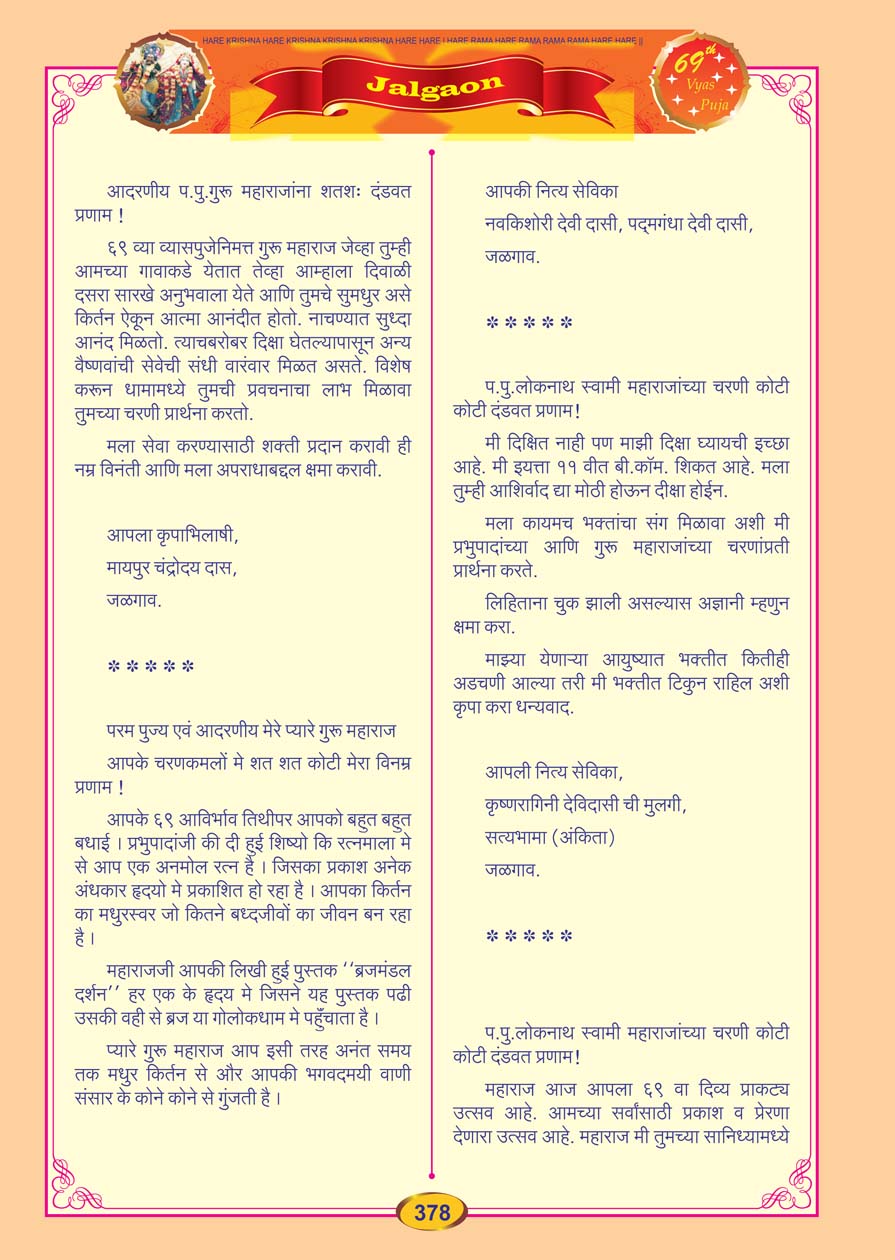 HARE KRISHNA HARE KRISHNA KRISHNA KRISHNA HARE HARE | HARE RAMA HARE RAMA RAMA RAMA HARE HARE ||
Jalgaon
69th
Vyas
Puja
आदरणीय प.पु.गुरू महाराजांना शतशः दंडवत
प्रणाम !
६९ व्या व्यासपुजेनिमत्त गुरू महाराज जेव्हा तुम्ही
आमच्या गावाकडे येतात तेव्हा आम्हाला दिवाळी
दसरा सारखे अनुभवाला येते आणि तुमचे सुमधुर असे
किर्तन ऐकून आत्मा आनंदीत होतो. नाचण्यात सुध्दा
आनंद मिळतो. त्याचबरोबर दिक्षा घेतल्यापासून अन्य
वैष्णवांची सेवेची संधी वारंवार मिळत असते. विशेष
करून धामामध्ये तुमची प्रवचनाचा लाभ मिळावा
तुमच्या चरणी प्रार्थना करतो.
मला सेवा करण्यासाठी शक्ती प्रदान करावी ही
नम्र विनंती आणि मला अपराधाबद्दल क्षमा करावी.
आपला कृपाभिलाषी,
मायपुर चंद्रोदय दास,
जळगाव.
*****
परम पुज्य एवं आदरणीय मेरे प्यारे गुरू महाराज
आपके चरणकमलों मे शत शत कोटी मेरा विनम्र
प्रणाम !
आपके ६९ आविर्भाव तिथीपर आपको बहुत बहुत
बधाई । प्रभुपादांजी की दी हुई शिष्यो कि रत्नमाला मे
से आप एक अनमोल रत्न है । जिसका प्रकाश अनेक
अंधकार हृदयो मे प्रकाशित हो रहा है । आपका किर्तन
का मधुरस्वर जो कितने बध्दजीवों का जीवन बन रहा
है ।
महाराजजी आपकी लिखी हुई पुस्तक ‘‘ब्रजमंडल
दर्शन’’ हर एक के हृदय मे जिसने यह पुस्तक पढी
उसकी वही से ब्रज या गोलोकधाम मे पहुँचाता है ।
प्यारे गुरू महाराज आप इसी तरह अनंत समय
तक मधुर किर्तन से और आपकी भगवदमयी वाणी
संसार के कोने कोने से गुंजती है ।
आपकी नित्य सेविका
नवकिशोरी देवी दासी, पद्मगंधा देवी दासी,
जळगाव.
*****
प.पु.लोकनाथ स्वामी महाराजांच्या चरणी कोटी
कोटी दंडवत प्रणाम!
मी दिक्षित नाही पण माझी दिक्षा घ्यायची इच्छा
आहे. मी इयत्ता ११ वीत बी.कॉम. शिकत आहे. मला
तुम्ही आशिर्वाद द्या मोठी होऊन दीक्षा होईन.
मला कायमच भक्तांचा संग मिळावा अशी मी
प्रभुपादांच्या आणि गुरू महाराजांच्या चरणांप्रती
प्रार्थना करते.
लिहिताना चुक झाली असल्यास अज्ञानी म्हणुन
क्षमा करा.
माझ्या येणाऱ्या आयुष्यात भक्तीत कितीही
अडचणी आल्या तरी मी भक्तीत टिकुन राहिल अशी
कृपा करा धन्यवाद.
आपली नित्य सेविका,
कृष्णरागिनी देविदासी ची मुलगी,
सत्यभामा (अंकिता)
जळगाव.
*****
प.पु.लोकनाथ स्वामी महाराजांच्या चरणी कोटी
कोटी दंडवत प्रणाम!
महाराज आज आपला ६९ वा दिव्य प्राकट्य
उत्सव आहे. आमच्या सर्वांसाठी प्रकाश व प्रेरणा
देणारा उत्सव आहे. महाराज मी तुमच्या सानिध्यामध्ये
378